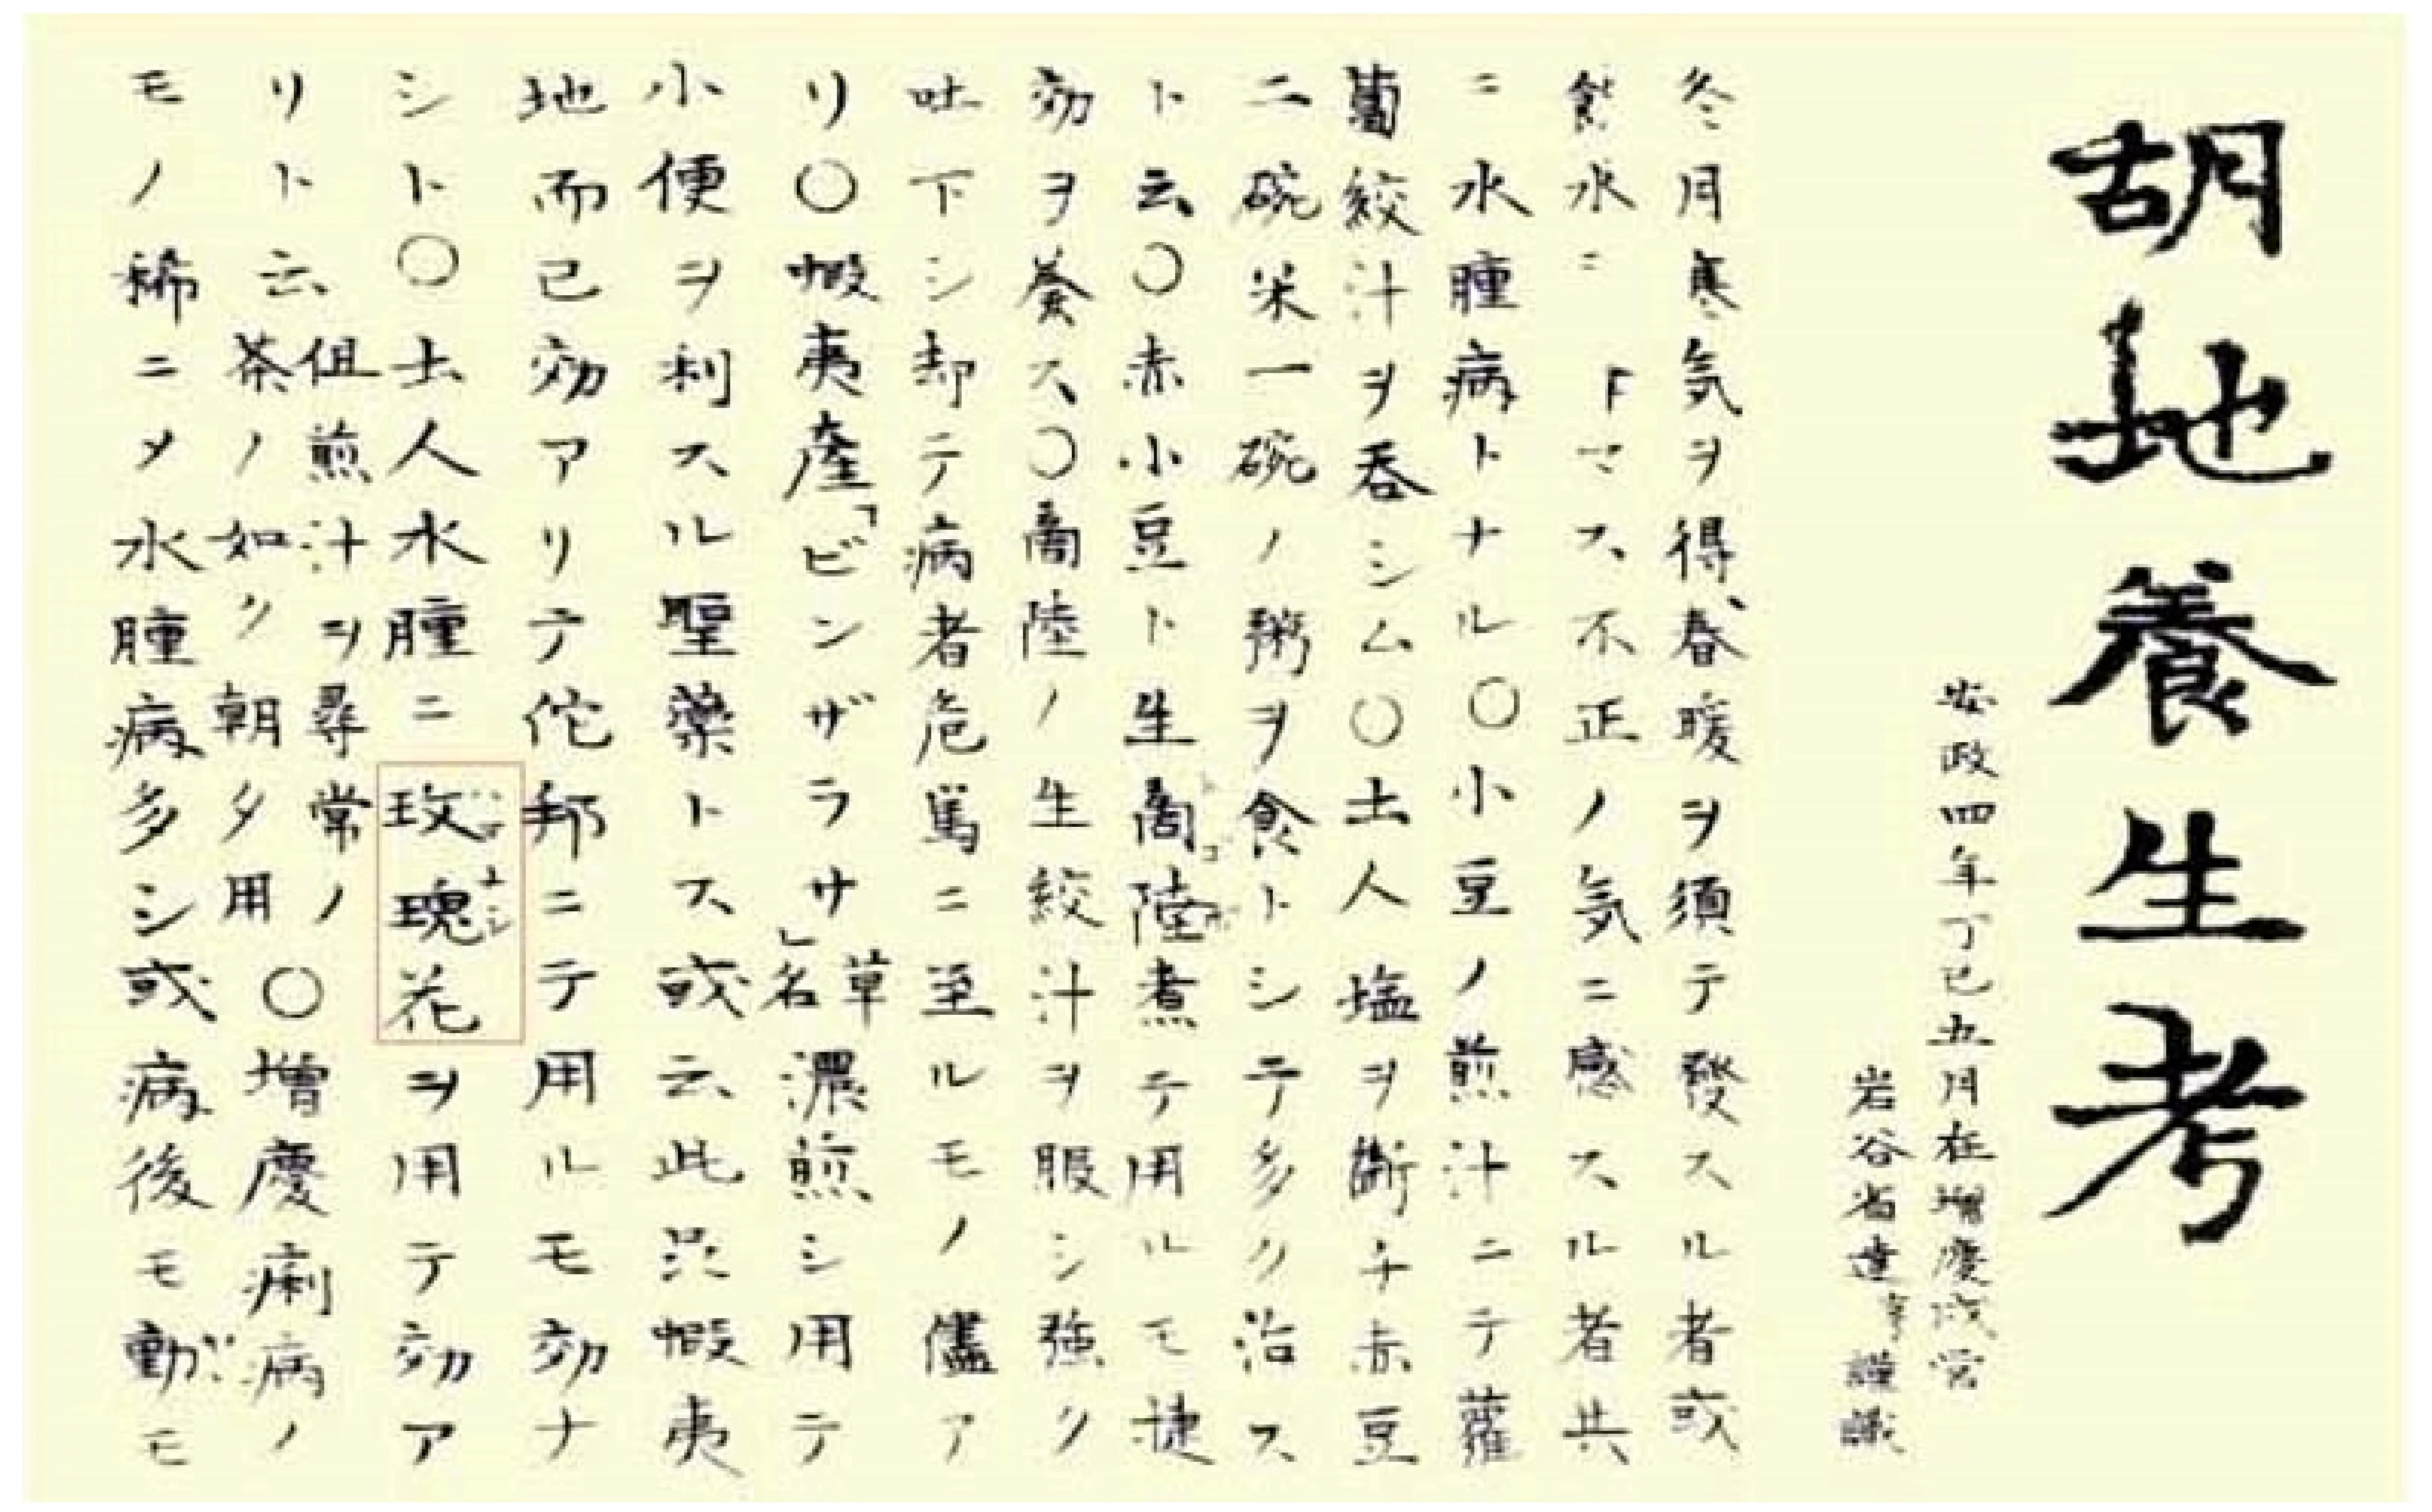 胡地養生考
安政四年丁巳五月在増慶戍営
岩谷省達 謹識
冬月寒気ヲ得春暖ヲ須テ發スル者或
飲水ニ トマス不正ノ気ニ感スル者共
ニ水腫病トナル〇小豆ノ煎汁ニテ蘿
蔔絞汁ヲ呑シム〇土人塩ヲ断チ赤豆
二碗米一碗ノ粥ヲ食トシテ多ク治ス
ト云〇赤小豆ト生商陸煮テ用ルモ捷
効ヲ奏ス〇商陸ノ生絞汁ヲ服シ強ク
吐下シ却テ病者危篤ニ至ルモノ儘ア
リ〇蝦夷産「ビンザラサ」草名濃煎シ用テ
小便ヲ利スル聖薬トス或云此只蝦夷
地而已効アリテ佗邦ニテ用ルモ効ナ
シト〇土人水腫ニ玫瑰花ヲ用テ効ア
リト云但煎汁ヲ尋常ノ茶ノ如ク朝夕用〇増慶痢病ノ
モノ稀ニメ水腫病多シ或病後モ動モ